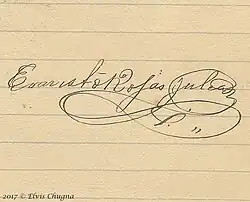 Evaristo Rojas Julian
2017 © Elvis Chugna